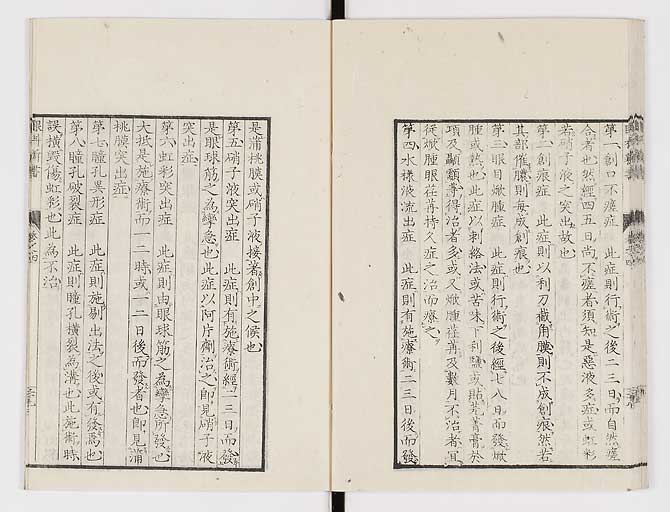 第一創口不癒症　此症則行術之後二三日而自然癒
合者也然經四五日尚不癒者須知是惡液多症或虹彩
若硝子液之突出故也
第二創痕症　此症則以利刀截角膜則不成創痕然若
其部催膿則每成創痕也
第三眼目焮腫症　此症則行術之後經七八日而發焮
腫或熱也此症以刺絡法或苦味下利鹽或貼芫菁膏於
項及顳顬等得治者多或又焮腫荏苒及數月不治者宜
從焮腫眼荏苒持久症之治而療之
第四水樣液流出症　此症則有施療術二三日後而發
是蒲桃膜或硝子液接著創中之候也
第五硝子液突出症　此症則有施療術經二三日而發
是眼球筋之為攣急也此症以阿片劑治之即見硝子液
突出症
第六虹彩突出症　此症則由眼球筋之為攣急所發也
大抵是施療術而一二時或一二日後而發者也即見蒲
桃膜突出症
第七瞳孔異形症　此症則施剔出法之後或有發焉也
第八瞳孔破裂症　此症則瞳孔橫裂為溝也此施術時
誤橫毀傷虹彩也此為不治
眼科新書
卷之四